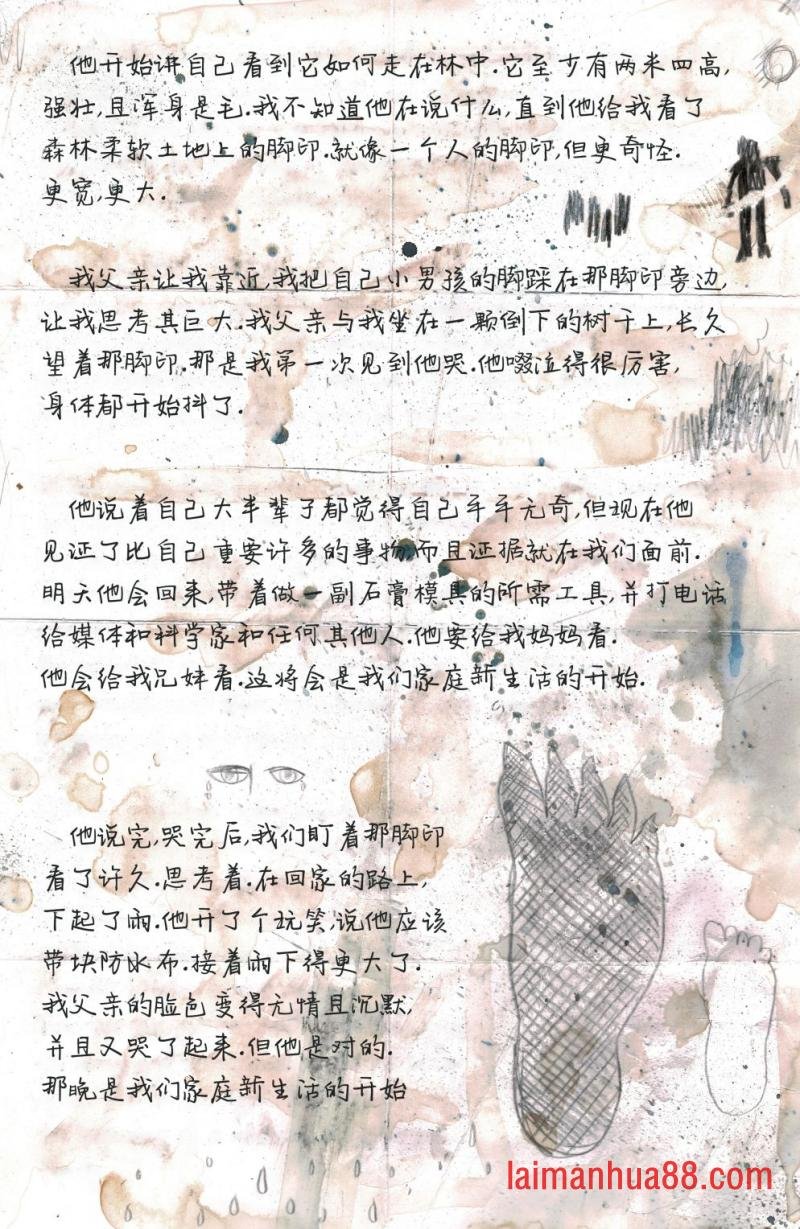 他开始讲自己看到它如何走在林中.它至少有两米四高,
强壮,且浑身是毛.我不知道他在说什么,直到他给我看了
森林柔软土地上的脚印.就像一个人的脚印,但更奇怪.
更宽,更大.
我父亲让我靠近,我把自己小男孩的脚踩在那脚印旁边,
让我思考其巨大.我父亲与我坐在一颗倒下的树干上,长久
望着那脚印.那是我第一次见到他哭.他啜泣得很厉害,
身体都开始抖了.
他说着自己大半辈子都觉得自己平平无奇,但现在他
见证了比自己重要许多的事物,而且证据就在我们面前.
明天他会回来,带着做一副石膏模具的所需工具,并打电话
给媒体和科学家和任何其他人.他要给我妈妈看.
他会给我兄妹看.这将会是我们家庭新生活的开始.
他说完,哭完后,我们盯着那脚印
看了许久.思考着.在回家的路上,
下起了雨.他开了个玩笑,说他应该
带块防水布.接着雨下得更大了.
我父亲的脸色变得无情且沉默,
并且又哭了起来.但他是对的.
那晚是我们家庭新生活的开始
laimanhua88.com